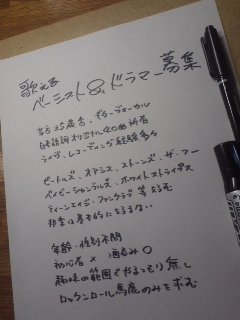 歌える
ベーシスト&ドラマー募集
当方35歳♂、ギターヴォーカル
日本語詞オリジナル40曲所有
ライヴ、レコーディング経験多々
ビートルズ、オアシス、ストーンズ、ザ・フー
ベイビーシャンブルズ、ホワイトストライプス
ティーンエイジ・ファンクラブ 等 好む
邦楽は基本的に好まない
年齢・性別不問
初心者 × 酒呑み ○
趣味の範囲でやるつもり無し
ロックンロール馬鹿のみを求む